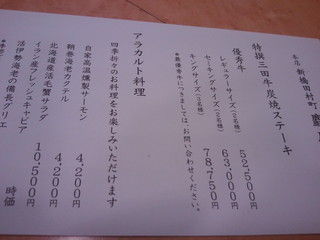 本店 新橋田村町
特撰三田牛炭焼ステーキ
優秀牛
レギュラーサイズ(2名様) 52,500円
セミキングサイズ(2名様) 63,000円
キングサイズ(2名様) 78,750円
＊最優秀牛につきましては、お問い合わせください。
アラカルト料理
四季折々のお料理をお楽しみいただけます
自家高温燻製サーモン 4,200円
鞘巻海老カクテル 4,200円
北海道産活毛蟹サラダ
イラン産フレッシュキャビア 10,500円
活伊勢海老の備長グリエ 時価